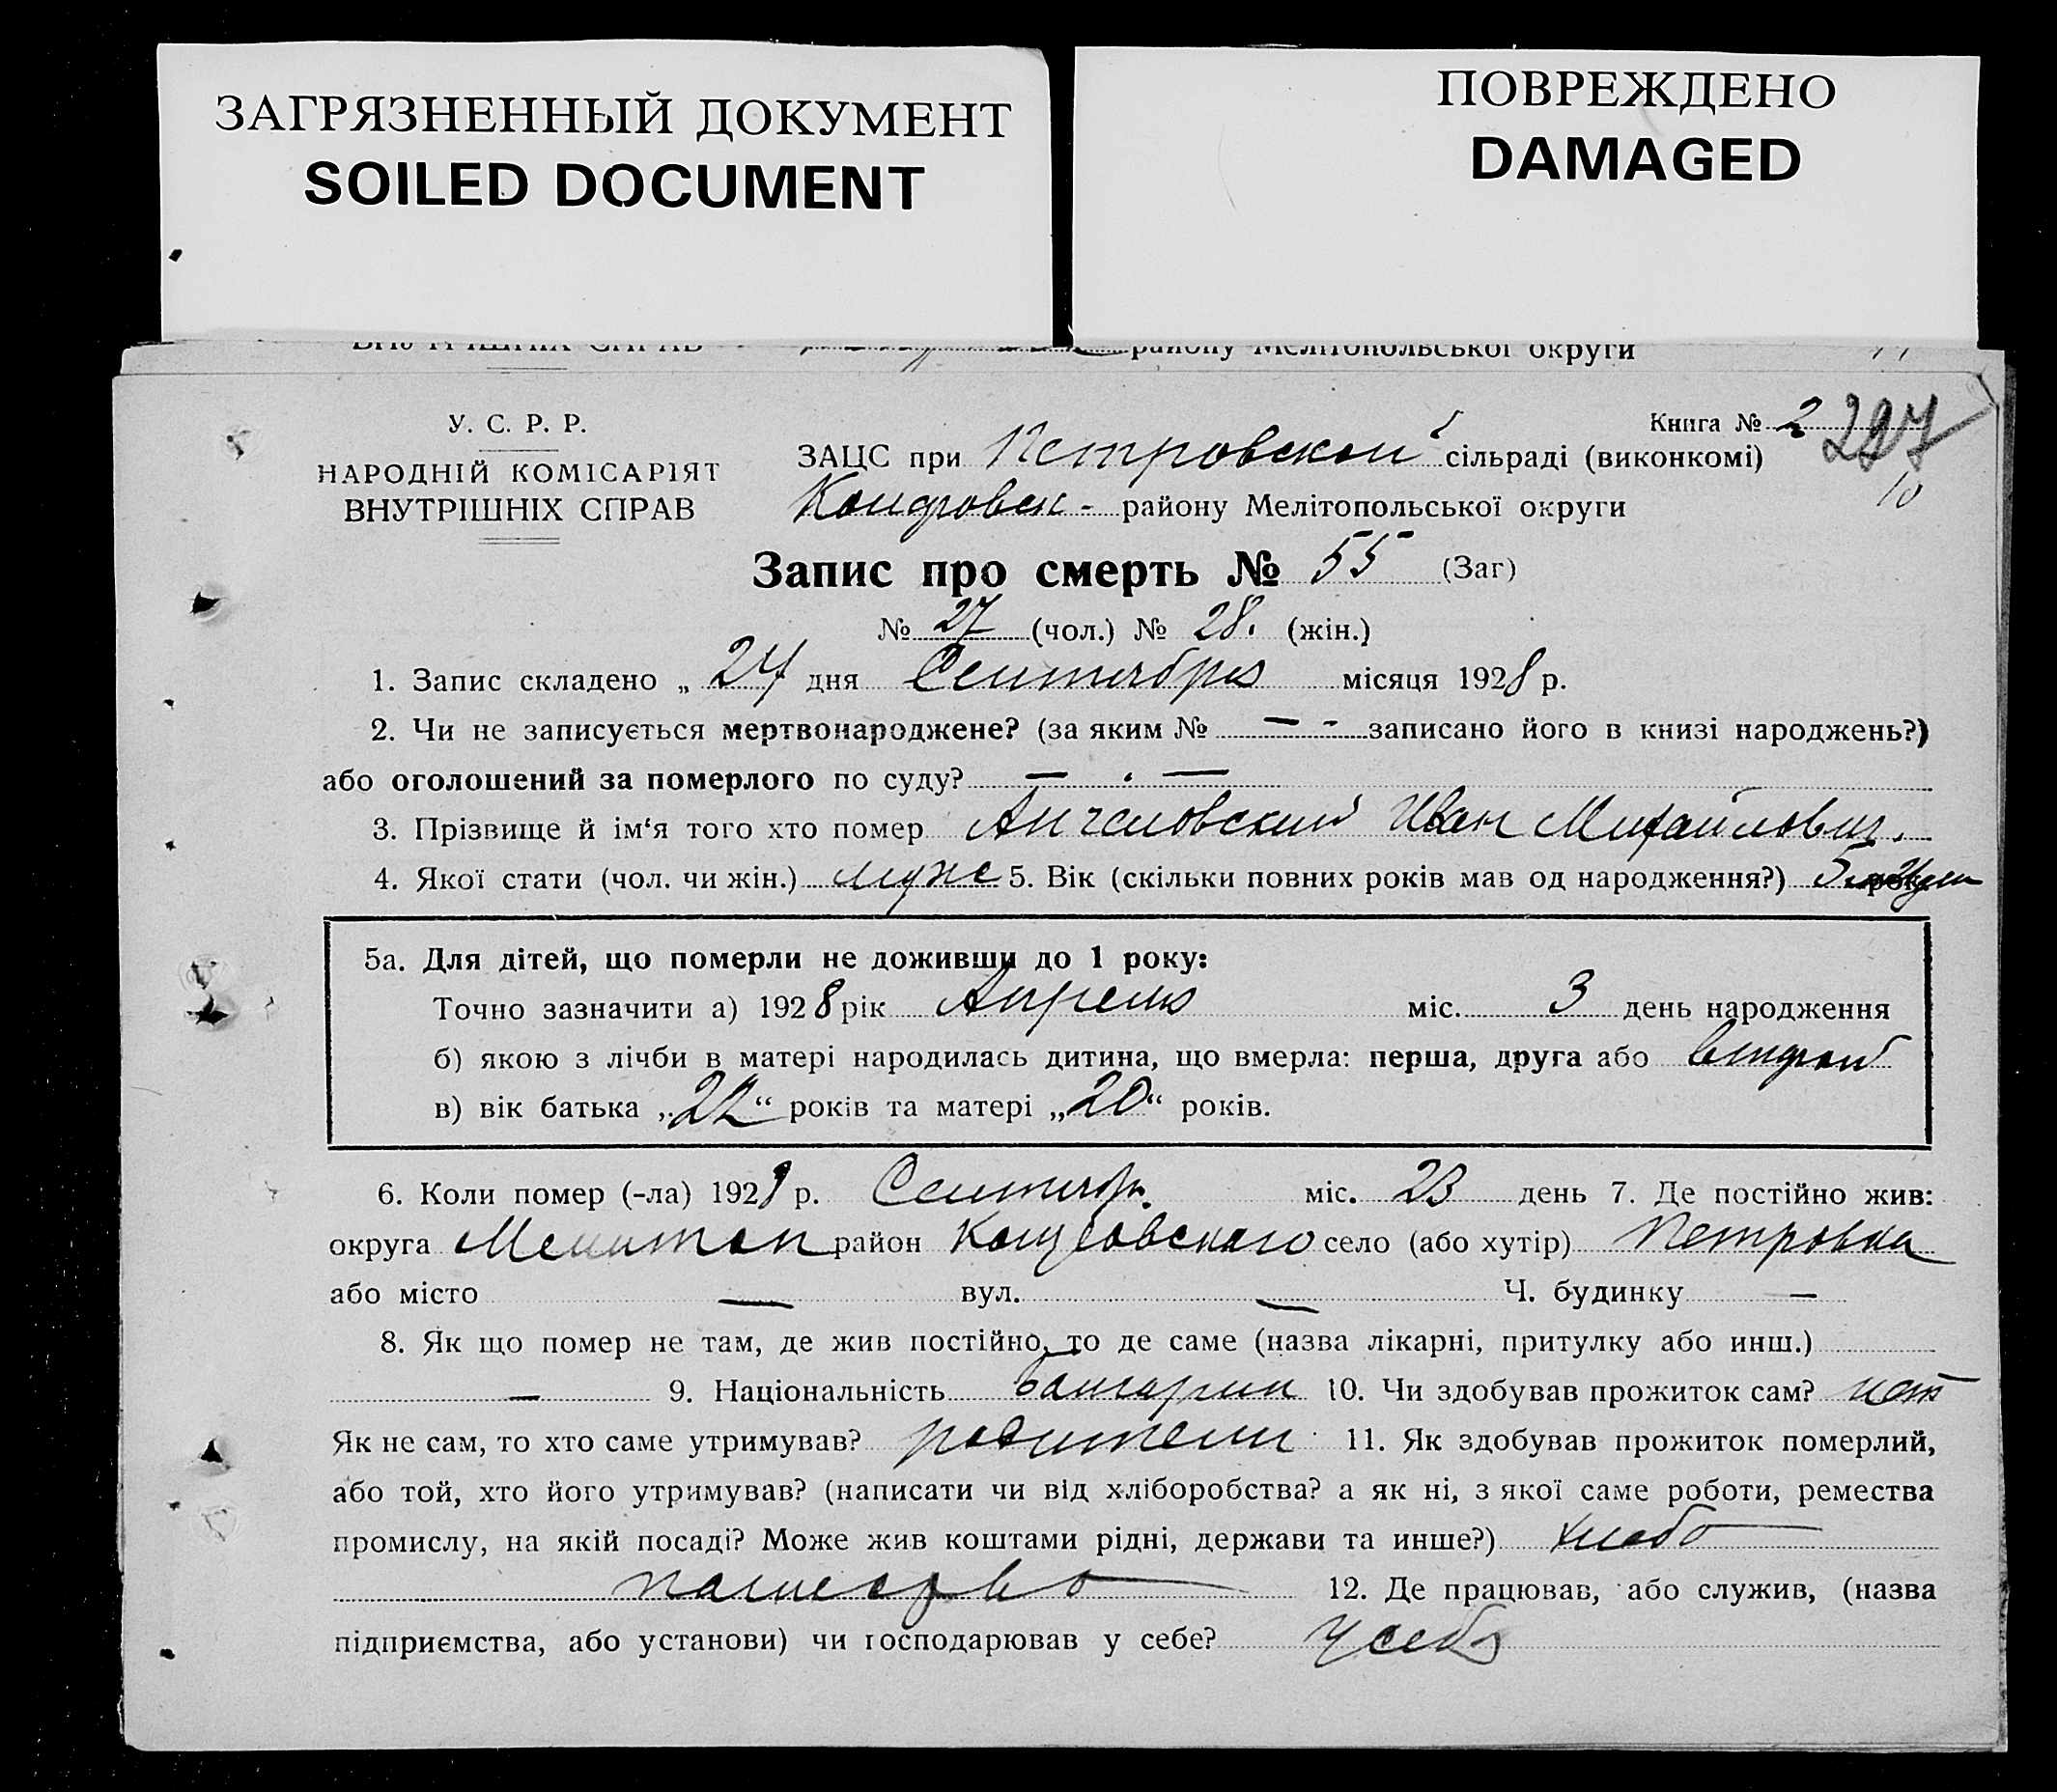 ЗАГРЯЗНЕННЫЙ ДОКУМЕНТ
SOILED DOCUMENT
ПОВРЕЖДЕНО
DAMAGED
ВНУТРІШНІХ СПРАВ району Мелітопольської округи
У. С. Р. Р.
НАРОДНІЙ КОМІСАРІЯТ
ВНУТРІШНІХ СПРАВ
Книга № 2 227
ЗАЦС при Петровской сільраді (виконкомі)
10
району Мелітопольської округи
Запис про смерть № 55 (Заг)
№ 27 (чол.) № 28. (жін.)
1. Запис складено „ 24 дня Сентября місяця 1928 р.
2. Чи не записується мертвонароджене? (за яким № — - записано його в книзі народжень?)
або оголошений за померлого по суду? — . —
3. Прізвище й ім‘я того хто помер Ангеловский Иван Михайлович.
4. Якої стати (чол. чи жін.) муже 5. Вік (скільки повних років мав од народження?) 5
5а. Для дітей, що померли не доживши до 1 року:
Точно зазначити а) 1928 рік Апреля міс. 3 день народження
б) якою з лічби в матері народилась дитина, що вмерла: перша, друга або второй
в) вік батька „22“ років та матері „20“ років.
6. Коли помер (-ла) 1928 р. Сентябр. міс. 23 день 7. Де постійно жив:
округа Мелитоп район село (або хутір) Петровка
або місто — вул. — Ч. будинку —
8. Як що помер не там, де жив постійно, то де саме (назва лікарні, притулку або инш.)
— 9. Національність болгарин 10. Чи здобував прожиток сам? нет
Як не сам, то хто саме утримував? родители 11. Як здобував прожиток померлий,
або той, хто його утримував? (написати чи від хліборобства? а як ні, з якої саме роботи, ремества
промислу, на якій посаді? Може жив коштами рідні, держави та инше?) хлебо
пашество 12. Де працював, або служив, (назва
підприємства, або установи) чи господарював у себе? у себя